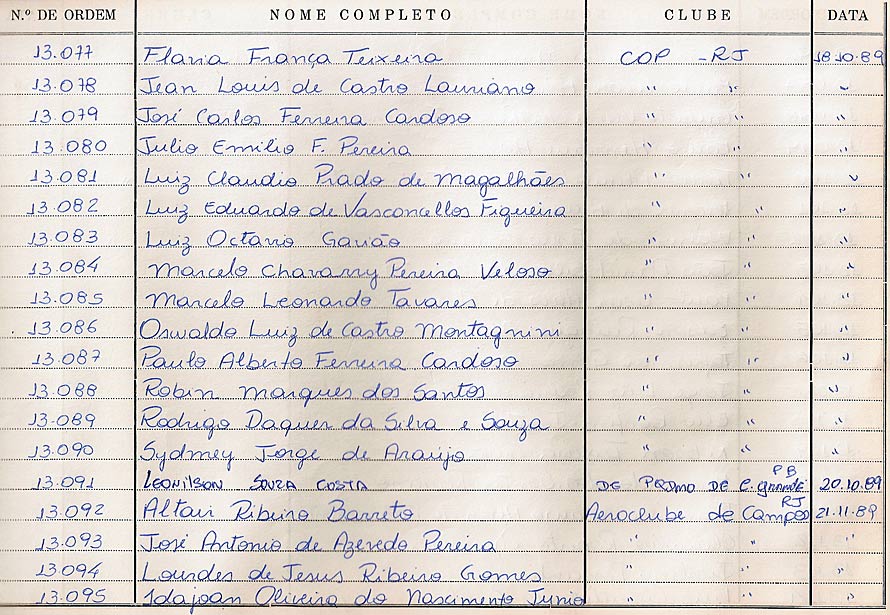 N.º DE ORDEM NOME COMPLETO CLUBE DATA
13.077 Flavia França Teixeira COP - RJ 18.10.89
13.078 Jean Louis de Castro Lauriano " " "
13.079 José Carlos Ferreira Cardoso " " "
13.080 Julio Emilio F. Pereira " " "
13.081 Luiz Claudio Prado de Magalhães " " "
13.082 Luiz Eduardo de Vasconcellos Figueira " " "
13.083 Luiz Octavio Gavião " " "
13.084 Marcelo Chavarry Pereira Veloso " " "
13.085 Marcelo Leonardo Tavares " " "
13.086 Oswaldo Luiz de Castro Montagnini " " "
13.087 Paulo Alberto Ferreira Cardoso " " "
13.088 Robin Marques dos Santos " " "
13.089 Rodrigo Daquer da Silva e Souza " " "
13.090 Sydney Jorge de Araujo " " "
13.091 LEONILSON SOUZA COSTA DE PQDMO DE C. grande PB 20.10.89
13.092 Altair Ribeiro Barreto Aeroclube de Campos RJ 21.11.89
13.093 José Antonio de Azevedo Pereira " " "
13.094 Lourdes de Jesus Ribeiro Gomes " " "
13.095 Idajoan Oliveira do Nascimento Junio " " "